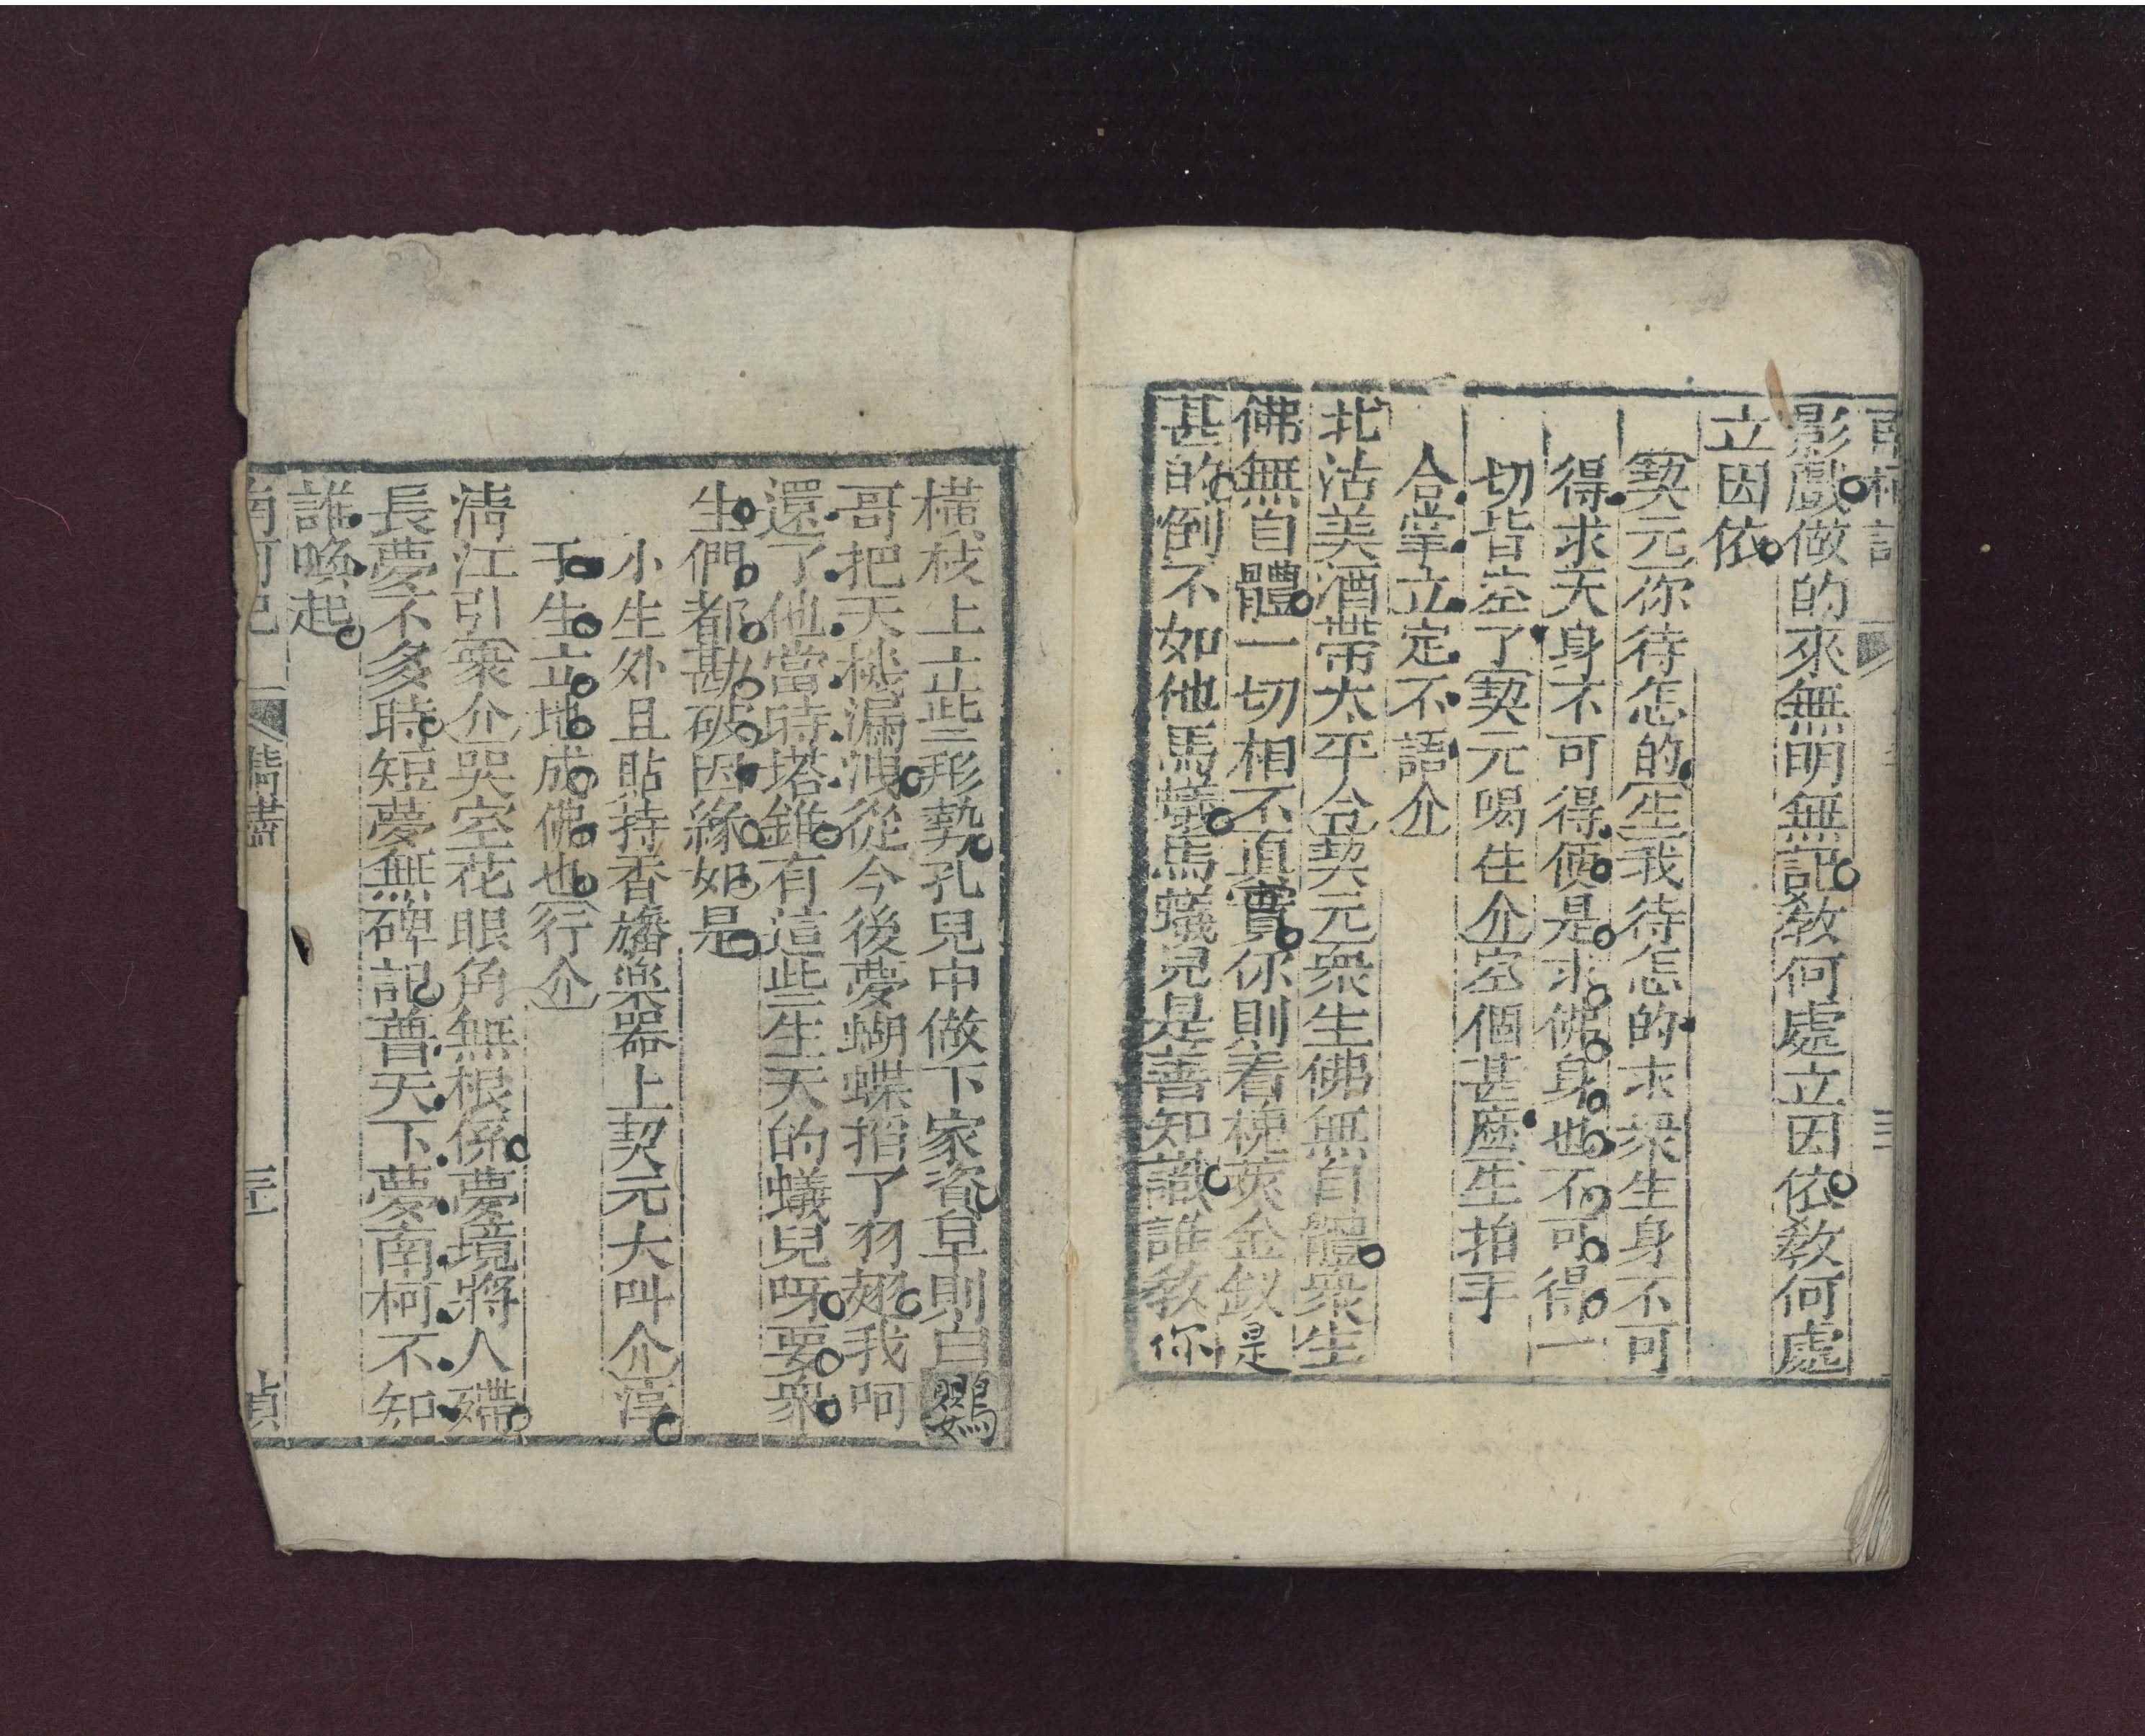 南柯記
影戲做的來無明無記教何處立因依教何處
立因依
契元你待怎的生我待怎的求衆生身不可
得求天身不可得便是求佛身也不可得一
切皆空了契元喝住介空個甚麽生拍手
合掌立定不語介
北沽美酒帶太平令契元衆生佛無自體衆生
佛無自體一切相不眞實你則看槐莢金釵是
甚的倒不如他馬蟻馬蟻兒是善知識誰教你
橫枝上立些形勢孔兒中做下家資早則白鸚
哥把天機漏洩從今後夢蝴蝶揩了羽翅我呵
還了他當時塔錐有這些生天的蟻兒呀要衆
生們都勘破因緣如是
小生外且貼持香旛樂器上契元大叫介淳
于生立地成佛也行介
淸江引衆介哭空花眼角無根係夢境將人殢
長夢不多時短夢無碑記普天下夢南柯不知
誰喚起